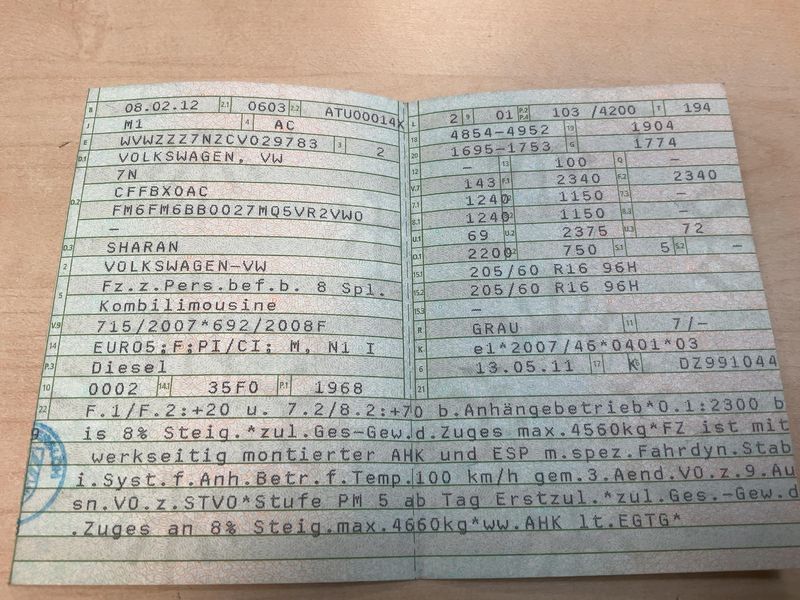 B 08.02.12 2.1 0603 2.2 ATU00014X
J M1 4 AC
E WVWZZZ7NZCV029783 3 2
D.1 VOLKSWAGEN, VW
7N
D.2 CFFBX0AC
FM6FM6BB0027MQ5VR2VW0
–
D.3 SHARAN
2 VOLKSWAGEN-VW
5 Fz.z.Pers.bef.b. 8 Spl.
Kombilimousine
V.9 715/2007*692/2008F
14 EURO5;F;PI/CI; M, N1 I
P.3 Diesel
10 0002 14.1 35F0 P.1 1968
L 2 9 01 P.2 P.4 103 /4200 T 194
18 4854-4952 19 1904
20 1695-1753 G 1774
12 – 13 100 Q –
V.7 143 F.1 2340 F.2 2340
7.1 1240 1150 7.3 –
8.1 1240 1150 8.3 –
U.1 69 U.2 2375 U.3 72
O.1 2200 750 S.1 5 S.2 –
15.1 205/60 R16 96H
15.2 205/60 R16 96H
15.3 –
R GRAU 11 7/-
K e1*2007/46*0401*03
6 13.05.11 17 K 16 DZ991044
21
22 F.1/F.2:+20 u. 7.2/8.2:+70 b.Anhängebetrieb*O.1:2300 b
is 8% Steig.*zul.Ges-Gew.d.Zuges max.4560kg*FZ ist mit
werkseitig montierter AHK und ESP m.spez.Fahrdyn.Stab
i.Syst.f.Anh.Betr.f.Temp.100 km/h gem.3.Aend.VO.z.9.Au
sn.VO.z.STVO*Stufe PM 5 ab Tag Erstzul.*zul.Ges.-Gew.d
.Zuges an 8% Steig.max.4660kg*ww.AHK lt.EGTG*